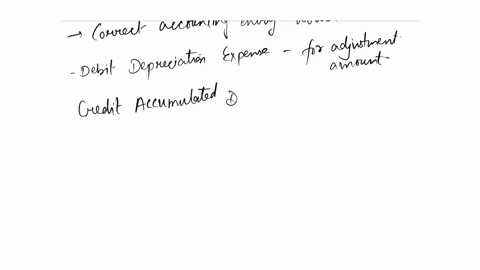 → Correct accounting entry
- Debit Depreciation Expense - for adjustment
amount
Credit Accumulated D